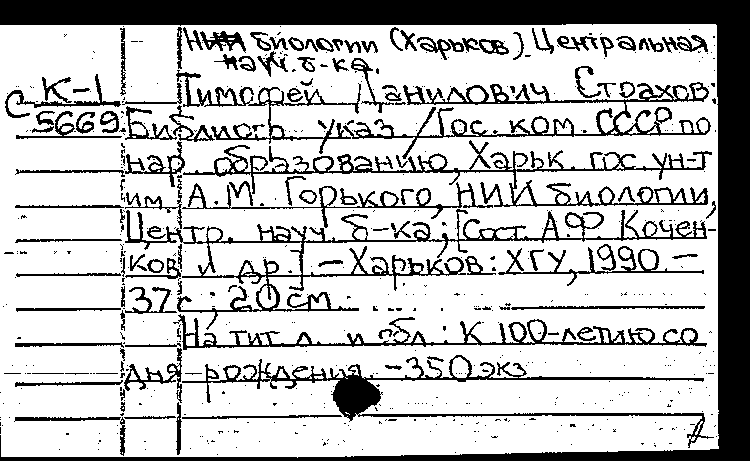 НИИ биологии (Харьков). Центральная
науч. б-ка.
К-1 Тимофей Данилович Страхов:
С 5669 Библиогр. указ. / Гос. ком. СССР по
нар. образованию, Харьк. гос. ун-т
им. А.М. Горького, НИИ биологии,
Центр. науч. б-ка; [Сост. А.Ф. Кочен-
ков и др.]. – Харьков: ХГУ, 1990. –
37 с.; 20 см.
На тит. л. и обл.: К 100-летию со
дня рождения. – 350 экз.